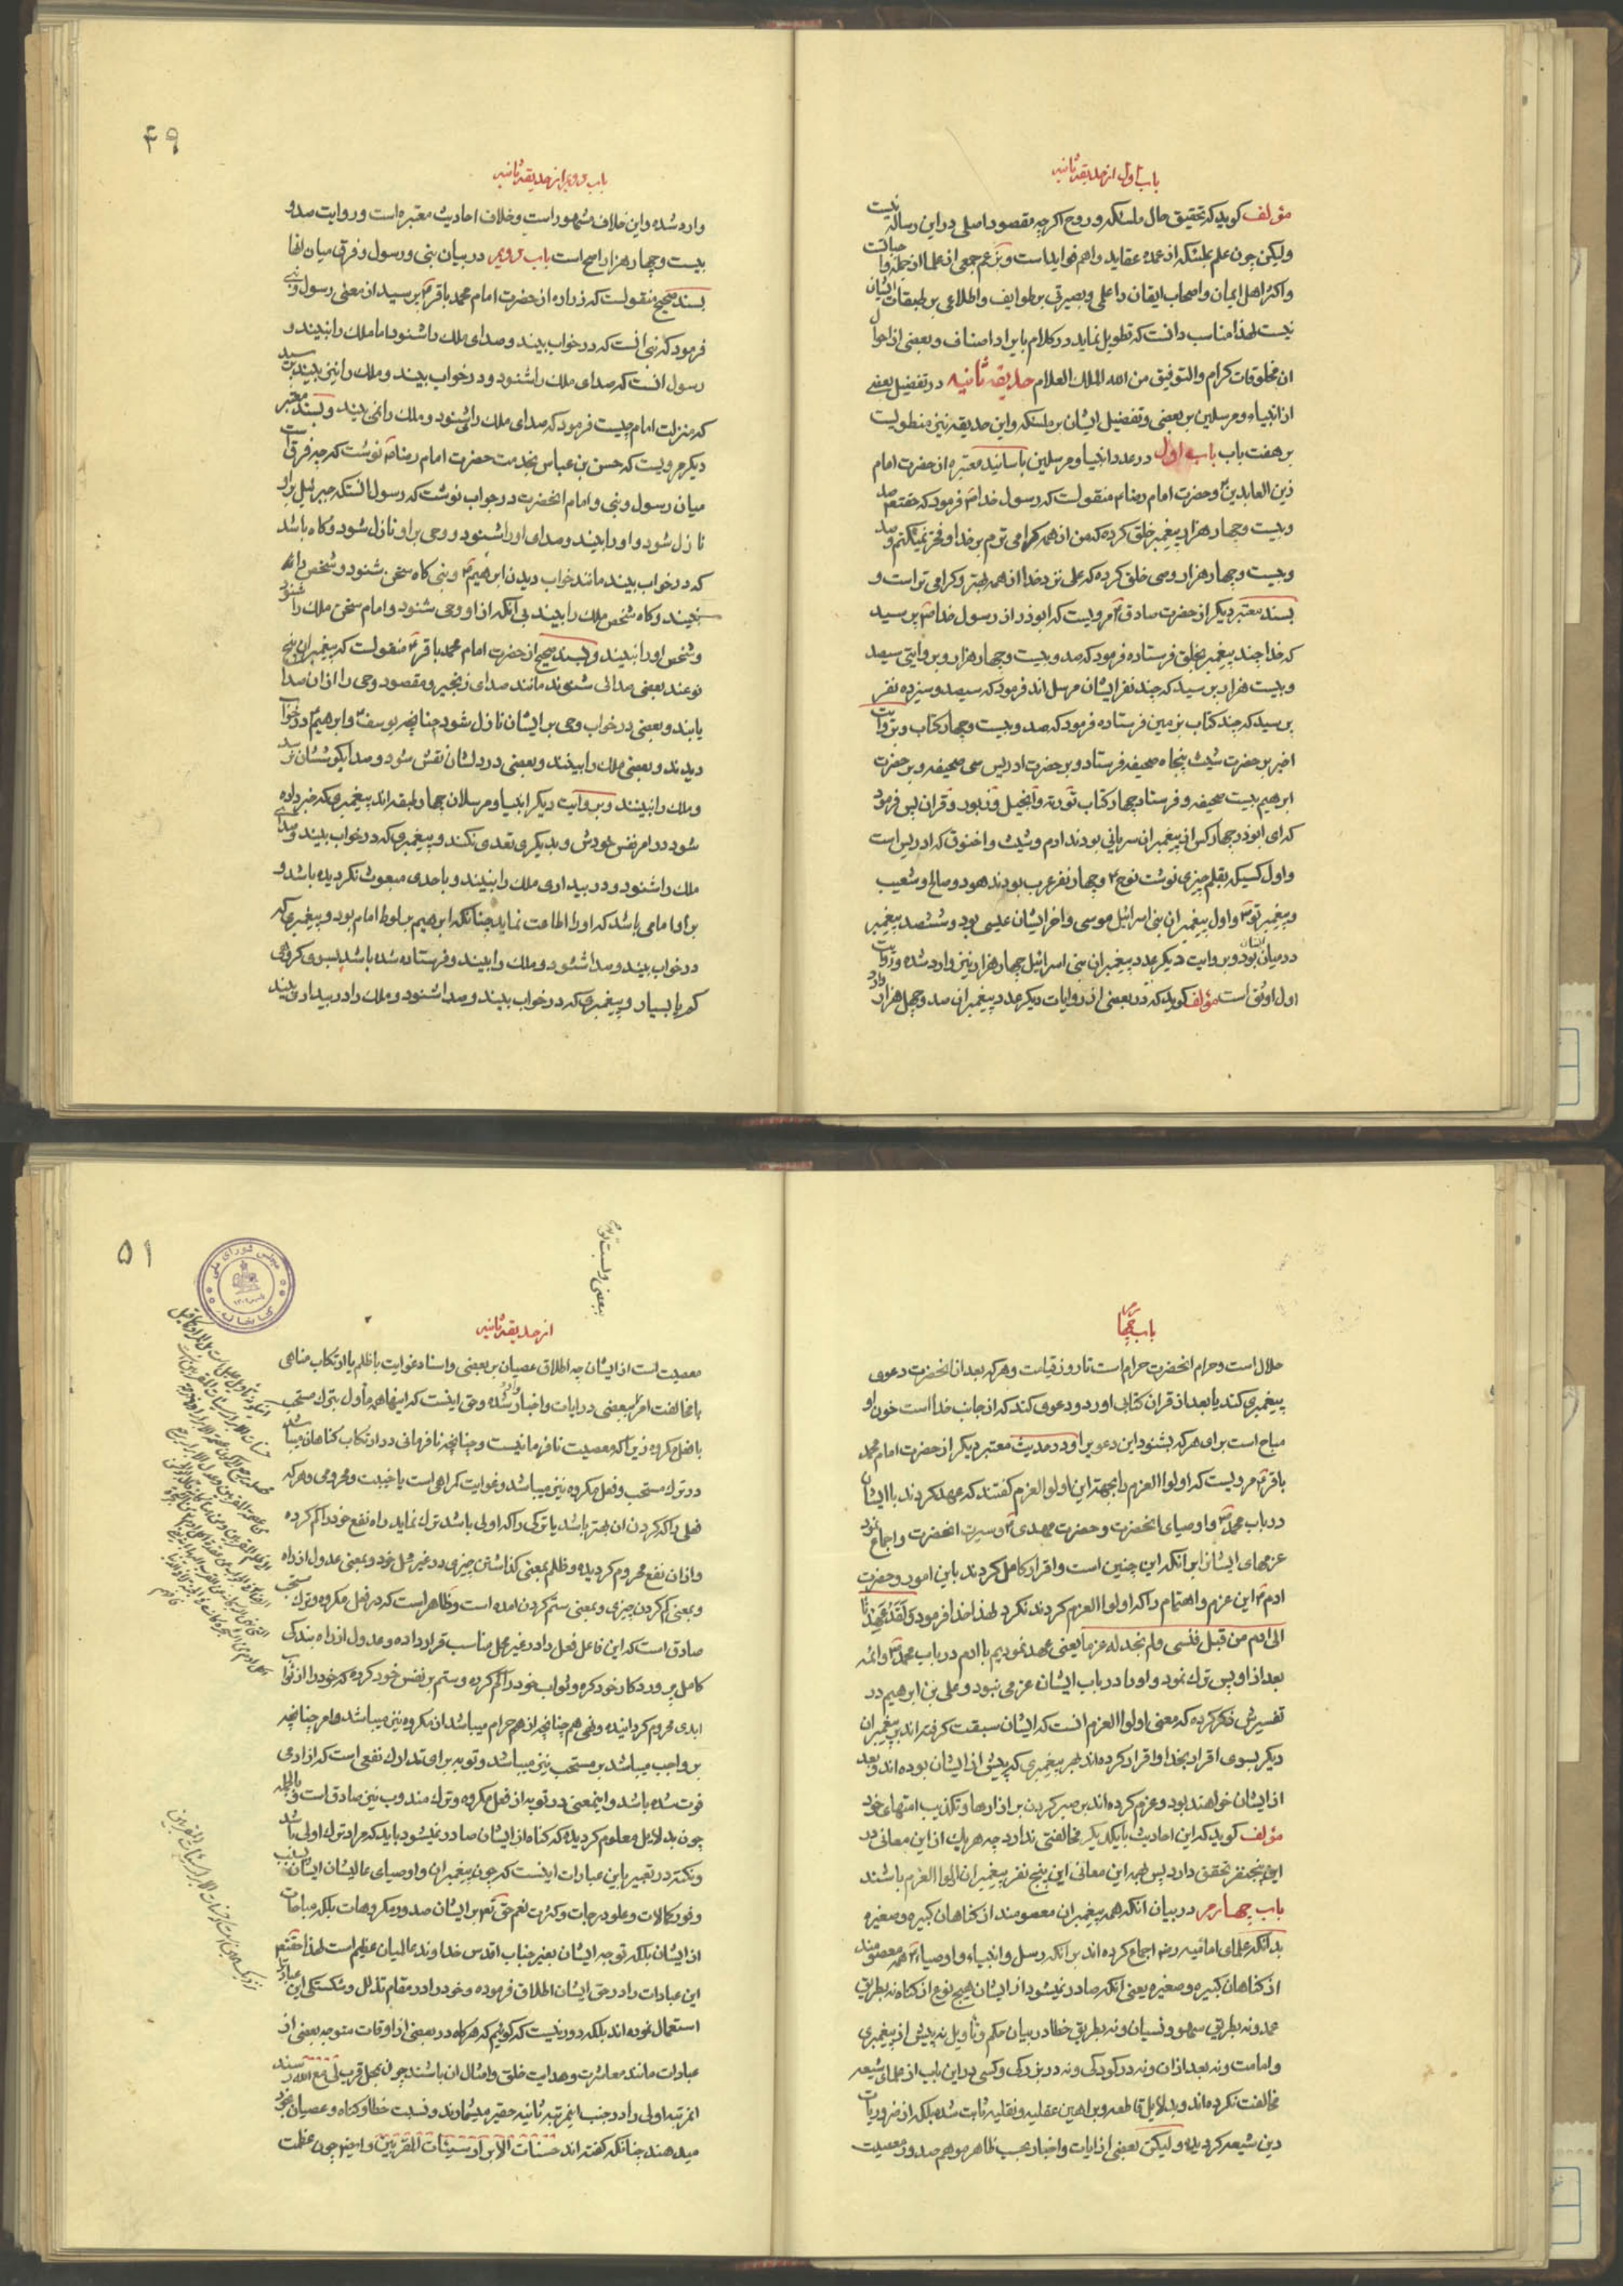 باب اول از حدیقه ثانیه
مؤلف کوید که تحقیق حال ملئکه و روح اکرچه مقصود اصلی در این رساله نیست
ولیکن چون علم بملئکه از عمده عقاید و اهم فواید است و بزعم جمعی از علما از جمله
و اکثر اهل ایمان و اصحاب ایقان را علمی و بصیرتی بر طوایف و اطلاعی بر طبقات ایشان
نیست لهذا مناسب دانست که تطویل نماید در کلام بایراد اصناف و بعضی از احوال
ان مخلوقات کرام والتوفیق من الله الملك العلام حدیقه ثانیه در تفضیل بعضی
از انبیاء و مرسلین بر بعضی و تفضیل ایشان بر ملئکه و این حدیقه نیز منطویست
بر هفت باب باب اول در عدد انبیا و مرسلین باسانید معتبره از حضرت امام
زین العابدین و حضرت امام رضا منقولست که رسول خدا فرمود که حقتعم صد
و بیست و چهار هزار پیغمبر خلق کرده که من از همه کرامی ترم بر خدا و فخر نمیکنم و صد
و بیست و چهار هزار وصی خلق کرده که علی نزد خدا از همه بهتر و کرامی تر است و
بسند معتبر دیکر از حضرت صادق مرویست که ابوذر از رسول خدا پرسید
که خدا چند پیغمبر بخلق فرستاده فرمود که صد و بیست و چهار هزار و بروایتی سیصد
و بیست هزار پرسید که چند نفر ایشان مرسل اند فرمود که سیصد و سیزده نفر
پرسید که چند کتاب بزمین فرستاده فرمود که صد و بیست و چهار کتاب و بروایت
اخیر بر حضرت شیث پنجاه صحیفه فرستاد و بر حضرت ادریس سی صحیفه و بر حضرت
ابرهیم بیست صحیفه و فرستاد چهار کتاب توریة و انجیل و زبور و قران پس فرمود
که ای ابوذر چهار کس از پیغمبران سریانی بودند ادم و شیث و اخنوق که ادریس است
و اول کسیکه بقلم چیزی نوشت نوح و چهار نفر عرب بودند هود و صالح و شعیب
و پیغمبر تو و اول پیغمبران بنی اسرائیل موسی و اخر ایشان عیسی بود و ششصد پیغمبر
در میان ایشان بود و بروایت دیکر عدد پیغمبران بنی اسرائیل چهار هزار نیز وارد شده و روایت
اول اوثق است مؤلف کوید که در بعضی از روایات دیکر عدد پیغمبران صد و چهل هزار
۴۹
باب دویم از حدیقه ثانیه
وارد شده و این خلاف مشهور است و خلاف احادیث معتبره است و روایت صد و
بیست و چهار هزار اصح است باب دویم در بیان نبی و رسول و فرق میان انها
بسند صحیح منقولست که زراره از حضرت امام محمد باقر پرسید از معنی رسول و نبی
فرمود که نبی انست که در خواب بیند و صدای ملك را شنود اما ملك را نبیند و
رسول انست که صدای ملك را شنود و در خواب بیند و ملك را نیز بیند پرسید
که منزلت امام چیست فرمود که صدای ملك را میشنود و ملك را نمی بیند و بسند معتبر
دیکر مرویست که حسن بن عباس بخدمت حضرت امام رضا نوشت که چه فرق است
میان رسول و نبی و امام انحضرت در جواب نوشت که رسول انستکه جبرئیل بر او
نازل شود و او را بیند و صدای او را شنود و وحی بر او نازل شود و کاه باشد
که در خواب بیند مانند خواب دیدن ابرهیم و نبی کاه سخن شنود و شخص را
نبیند و کاه شخص ملك را بیند بی آنکه از او وحی شنود و امام سخن ملك را شنود
و شخص او را نبیند و بسند صحیح از حضرت امام محمد باقر منقولست که پیغمبران پنج
نوعند بعضی صدائی شنوند مانند صدای زنجیر و مقصود وحی را از ان صدا
یابند و بعضی در خواب وحی بر ایشان نازل شود چنانچه یوسف و ابرهیم در خواب
دیدند و بعضی ملك را بینند و بعضی در دلشان نقش شود و صدا بکوششان رسد
و ملك را نبینند و بروایت دیکر انبیا و مرسلان چهار طبقه اند پیغمبری که خبر داده
شود در امر نفس خودش و بدیکری تعدی نکند و پیغمبری که در خواب بیند و صدای
ملك را شنود و در بیداری ملك را نبیند و باحدی مبعوث نکردیده باشد و
بر او امامی باشد که او را اطاعت نماید چنانکه ابرهیم بر لوط امام بود و پیغمبری که
در خواب بیند و صدا شنود و ملك را بیند و فرستاده شده باشد بسوی کروهی
کم یا بسیار و پیغمبری که در خواب بیند و صدا شنود و ملك را در بیداری بیند
باب چهارم
حلال است و حرام انحضرت حرام است تا روز قیامت و هر که بعد از انحضرت دعوی
پیغمبری کند یا بعد از قران کتابی اورد و دعوی کند که از جانب خدا است خون او
مباح است برای هر که بشنود این دعوی را و در حدیث معتبر دیکر از حضرت امام محمد
باقر مرویست که اولوا العزم را بجهة این اولوا العزم کفتند که عهد کردند با ایشان
در باب محمد و اوصیای انحضرت و حضرت مهدی و سیرت انحضرت و اجماع نمود
عزمهای ایشان بر آنکه این چنین است و اقرار کامل کردند باین امور و حضرت
ادم این عزم و اهتمام را که اولوا العزم کردند نکرد لهذا خدا فرمود و لقد عهدنا
الی ادم من قبل فنسی ولم نجد له عزما یعنی عهد نمودیم با ادم در باب محمد و ائمه
بعد از او پس ترك نمود و او را در باب ایشان عزمی نبود و علی بن ابرهیم در
تفسیرش ذکر کرده که معنی اولوا العزم انست که ایشان سبقت کرفته اند بر پیغمبران
دیکر بسوی اقرار بخدا و اقرار کرده اند بهر پیغمبری که پیش از ایشان بوده اند و بعد
از ایشان خواهند بود و عزم کرده اند بر صبر کردن بر ازارها و تکذیب امتهای خود
مؤلف کوید که این احادیث با یکدیکر مخالفتی ندارد چه هریك از این معانی در
این پنجنفر تحقق دارد پس بهمه این معانی این پنج نفر پیغمبران اولوا العزم باشند
باب چهارم در بیان انکه همه پیغمبران معصومند از کناهان کبیره و صغیره
بدانکه علمای امامیه رضم اجماع کرده اند بر انکه رسل و انبیاء و اوصیاء همه معصومند
از کناهان کبیره و صغیره یعنی انکه صادر نمیشود از ایشان هیچ نوع از کناه نه بطریق
عمد و نه بطریق سهو و نسیان و نه بطریق خطا در بیان حکم و تاویل نه پیش از پیغمبری
و امامت و نه بعد از ان و نه در کودکی و نه در بزرکی و کسی در این باب از علمای شیعه
مخالفت نکرده اند و بدلایل قاطعه و براهین عقلیه و نقلیه ثابت شده بلکه از ضروریات
دین شیعه کردیده و لیکن بعضی از ایات و اخبار بحسب ظاهر موهم صدور معصیت
۵۱
مجلس شورای ملی
کتابخانه
از حدیقه ثانیه
معصیت است از ایشان چه اطلاق عصیان بر بعضی و اسناد غوایت یا ظلم یا ارتکاب مناهی
یا مخالفت امر ببعضی در ایات و اخبار وارد شده و حق اینست که اینها همه مأول بترك مستحب
یا فعل مکروه زیرا که معصیت نافرمانیست و چنانچه نافرمانی در ارتکاب کناهان میباشد
در ترك مستحب و فعل مکروه نیز میباشد و غوایت کمراهی است یا خیبت و محرومی و هر که
فعلی را که کردن ان بهتر باشد یا ترکی را که اولی باشد ترك نماید راه نفع خود را کم کرده
و از ان نفع محروم کردیده و ظلم بمعنی کذاشتن چیزی در غیر محل خود و بمعنی عدول از راه
و بمعنی کم کردن چیزی و بمعنی ستم کردن امده است و ظاهر است که در فعل مکروه و ترك مستحب
صادق است که این فاعل فعل را در غیر محل مناسب قرار داده و عدول از راه بندکی
کامل پروردکار خود کره و ثواب خود را کم کرده و ستم بر نفس خود کرده که خود را از ثواب
ابدی محروم کردانیده و نهی هم چنانچه از هم حرام میباشد از مکروه نیز میباشد و امر چنانچه
بر واجب میباشد بر مستحب نیز میباشد و توبه برای تدارك نفعی است که از ادمی
فوت شده باشد و اینمعنی در توبه از فعل مکروه و ترك مندوب نیز صادق است و بالجمله
چون بدلایل معلوم کردیده که کناه از ایشان صادر نمیشود باید که مراد ترك اولی باشد
و نکته در تعبیر باین عبارات اینست که چون پیغمبران و اوصیای عالیشان ایشان بسبب
وفور کمالات و علو درجات و کثرت نعم حق تعم بر ایشان صدور مکروهات بلکه مباحات
از ایشان بلکه توجه ایشان بغیر جناب اقدس خداوند عالمیان عظیم است لهذا حقتعم
این عبارات را در حق ایشان اطلاق فرموده و خود در مقام تذلل و شکستکی این عبارات
استعمال نموده اند بلکه دور نیست که کوئیم که هرکاه در بعضی از اوقات متوجه بعضی از
عبادات مانند معاشرت و هدایت خلق و امثال ان باشند چون بمحل قرب لی مع الله رسند
انمرتبه اولی را در جنب اینمرتبه ثانیه حقیر میشمارند و نسبت خطا و کناه و عصیان بخود
میدهند چنانکه کفته اند حسنات الابرار سیئات المقربین و ایضا چون عظمت